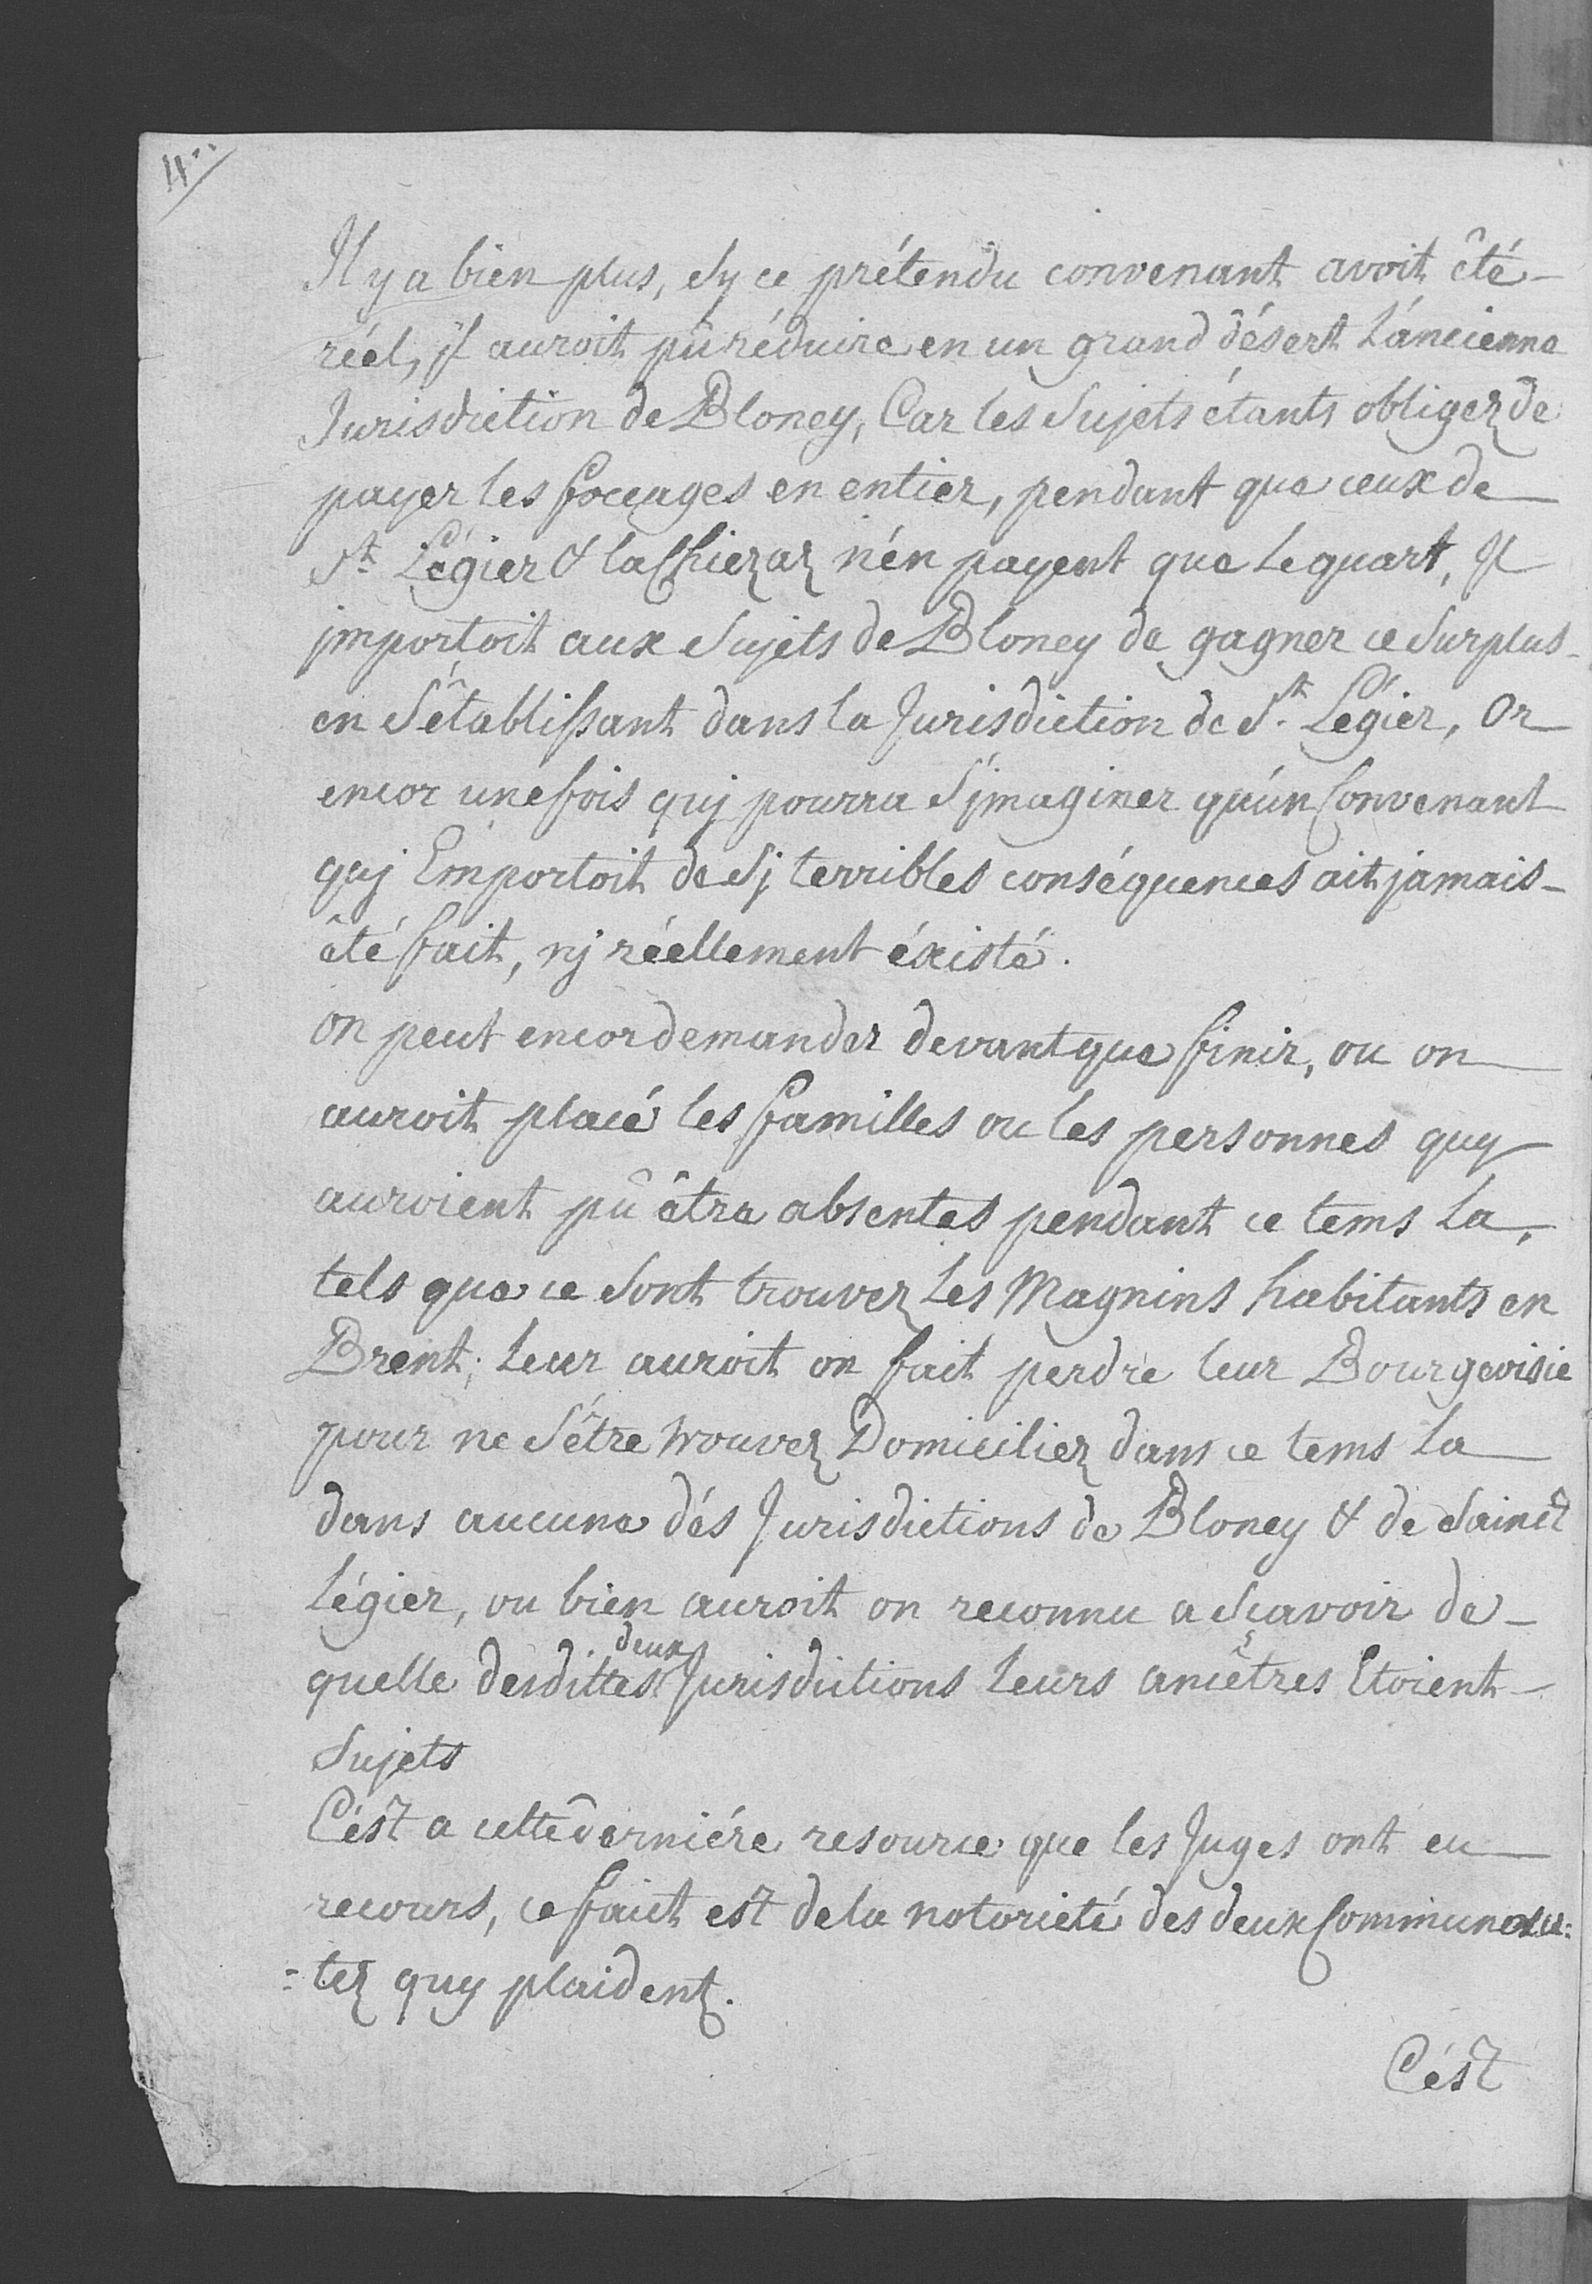 4..
Il y a bien plus, sy ce prétendu convenant avoit êté
réel, jl auroit pû réduire en un grand désert l'áncienne
Jurisdiction de Bloney, Car les Sujets étants obligez de
payer les foccages en entier, pendant que ceux de
St. Légier & la Chiezaz n'én payent que le quart, Il
jmportoit aux Sujets de Bloney de gagner ce surplus
en s'établissant dans la Jurisdiction de St. Légier, Or
encor une fois quj pourra s'jmaginer qu'ún Convenant
quj Emportoit de sj terribles conséquences ait jamais
êté fait, nj réellement éxisté.
on peut encor demander devant que finir, ou on
auroit placé les familles ou les personnes quy
auroient pû être absentes pendant ce tems la,
tels que ce sont trouvez les Magnins habitants en
Brent; leur auroit on fait perdre leur Bourgeoisie
pour ne s'être trouvez Domiciliez dans ce tems la
dans aucune dés Jurisdictions de Bloney & de Sainct
Légier, ou bien auroit on reconnu a sçavoir de
quelle desdittes deux Jurisdictions leurs ancêtres Etoient
Sujets
C'ést a cette derniére resource que les Juges ont eu
recours, ce faict est de la notorieté des deux Communau=
=tez quy plaident.
C'ést